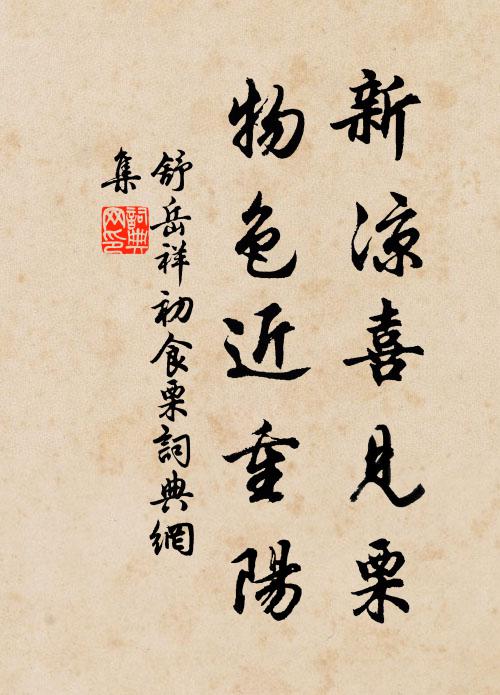 新涼喜見栗
物色近重陽
舒岳祥初食栗詞典網
集
詞典
网印